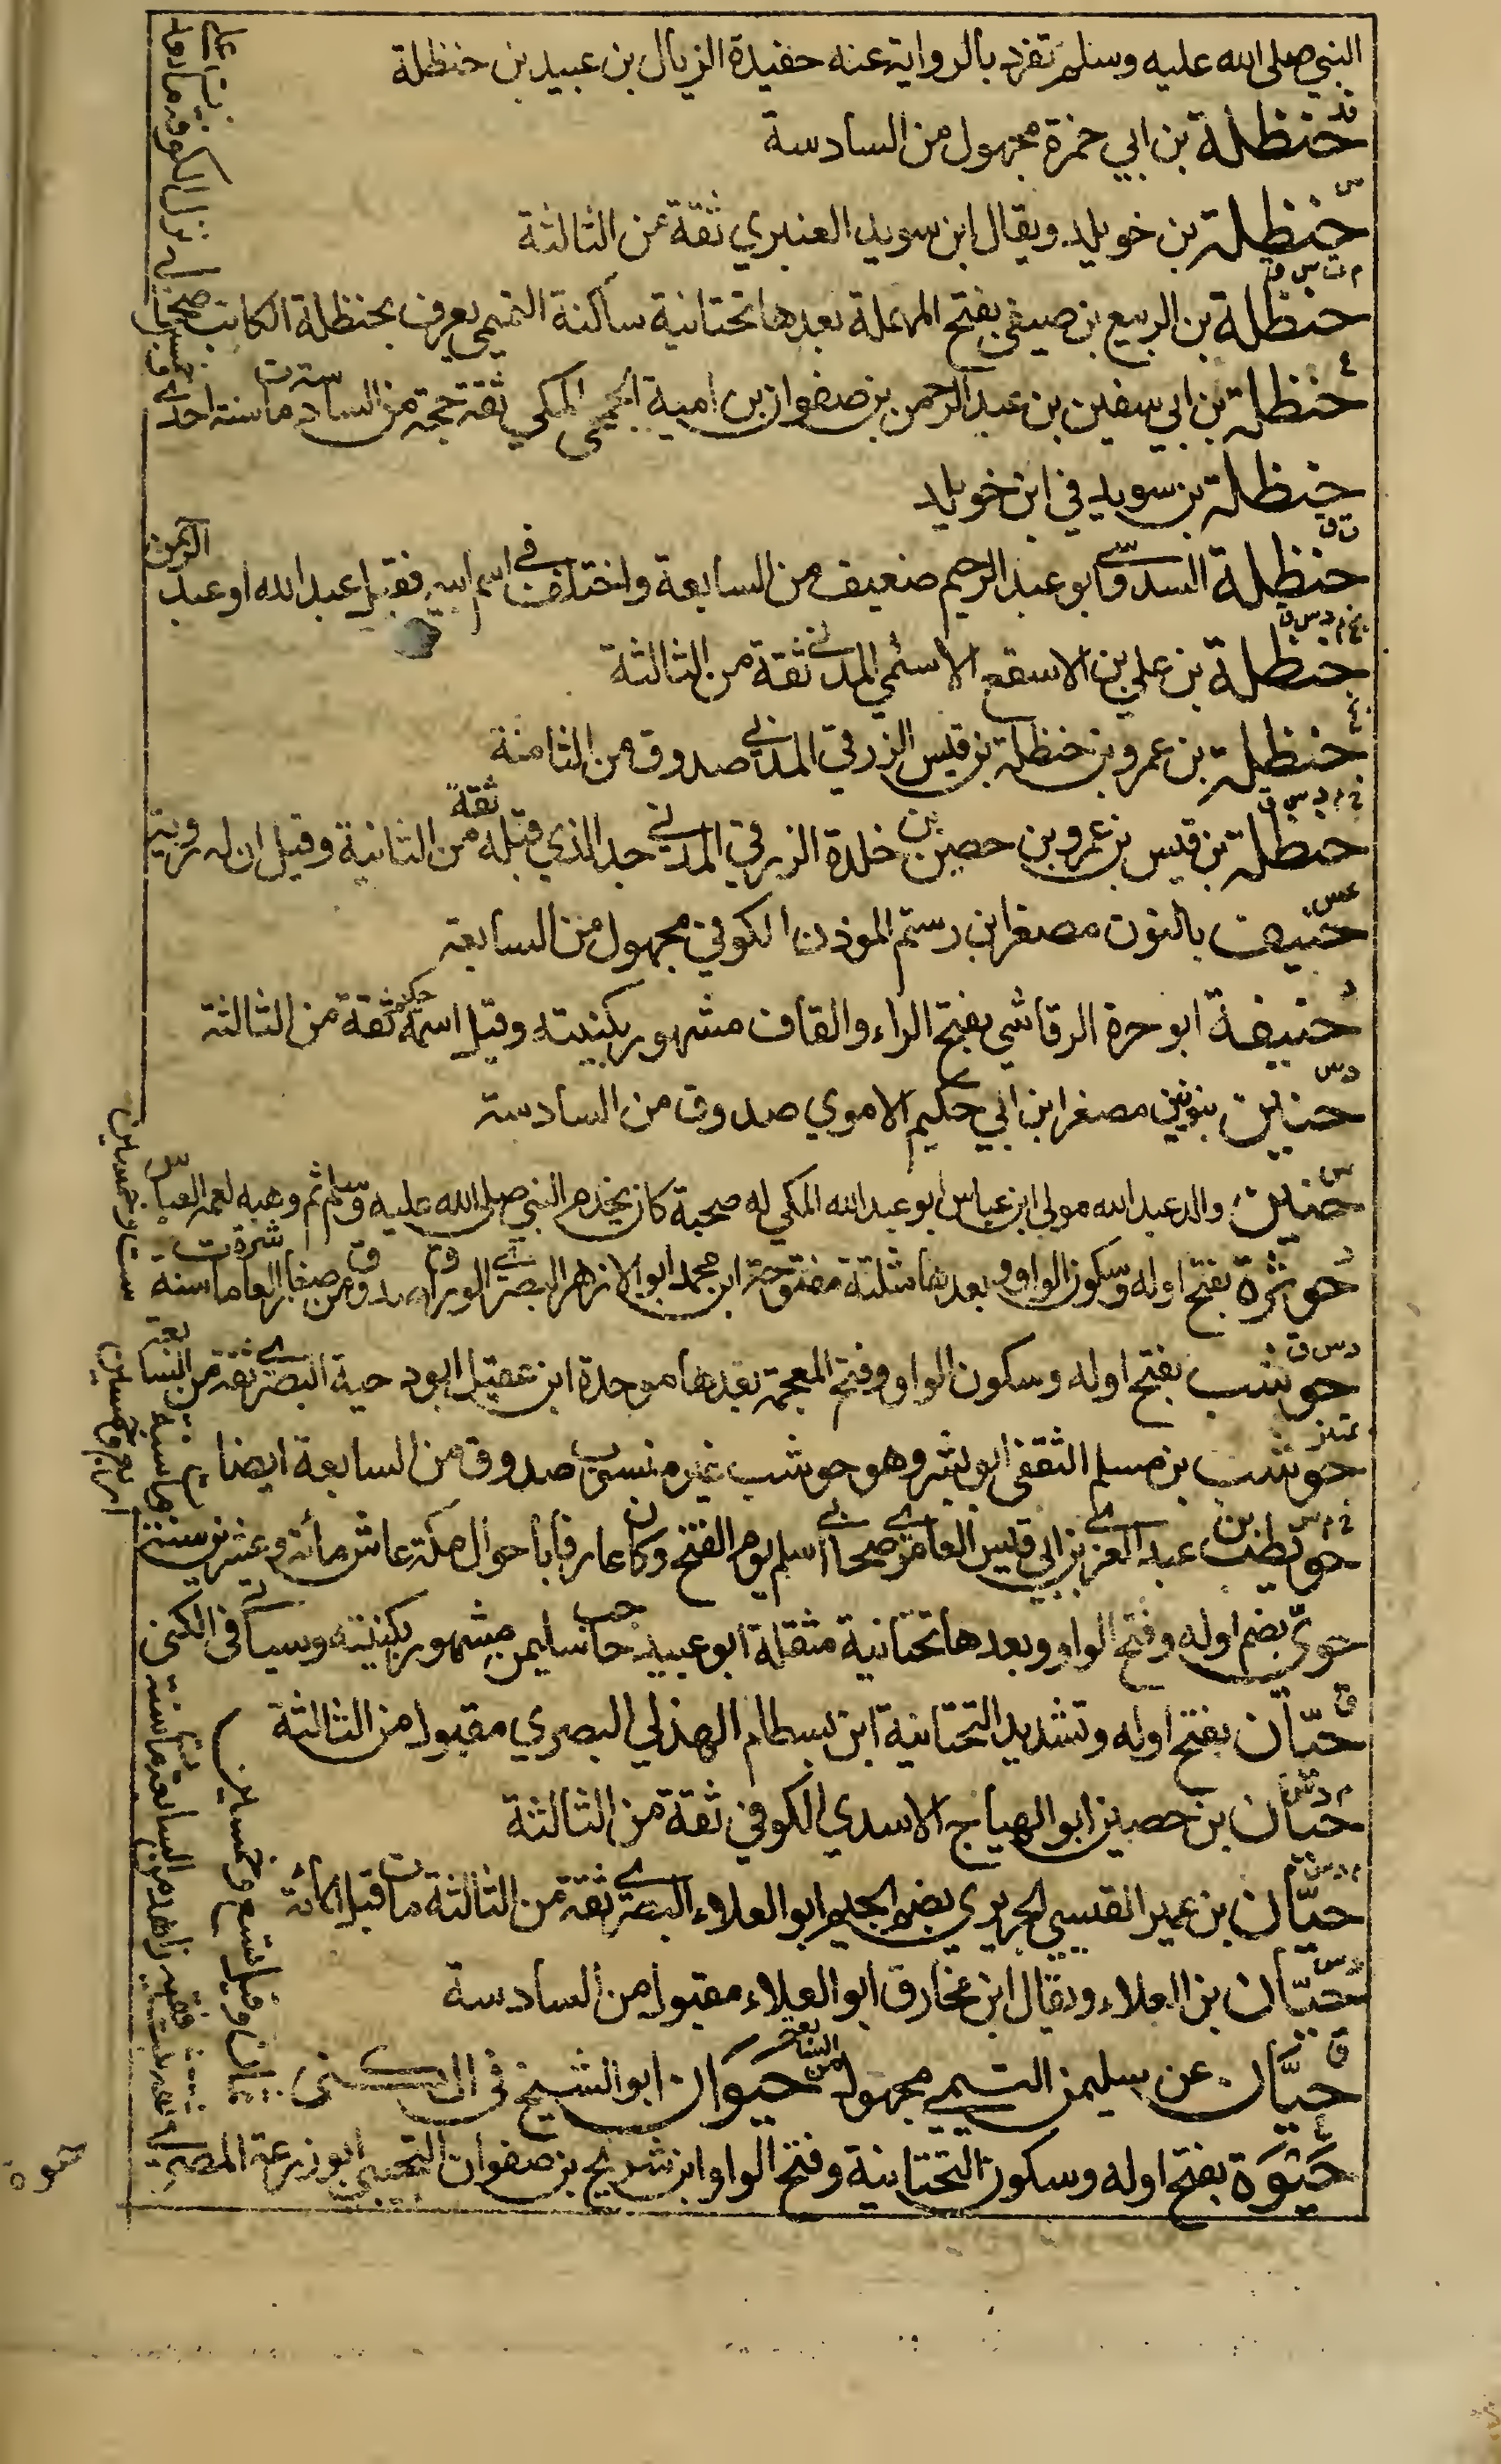 النبي صلى الله عليه وسلم تفرد بالرواية عنه حفيدة الزيال بن عبيد بن حنظلة
قد
حنظلة بن ابي حمزة مجهول من السادسة
س
حنظلة بن خويلد ويقال ابن سويد العنبري ثقة من الثالثة
م ت س ق
حنظلة بن الربيع بن صيفي بفتح المهملة بعدها تحتانية ساكنة التميمي يعرف بحنظلة الكاتب صحابي نزل الكوفة ومات بعد علي
ع
حنظلة بن ابي سفين بن عبد الرحمن بن صفوان بن امية الجمحي المكي ثقة حجة من السادسة مات سنة احدى وخمسين
حنظلة بن سويد في ابن خويلد
ت ق
حنظلة السدوسي ابو عبد الرحيم ضعيف من السابعة واختلف في اسم ابيه فقيل عبد الله او عبد الرحمن
بخ م د س ق
حنظلة بن علي بن الاسقع الاسلمي المدني ثقة من الثالثة
حنظلة بن عمرو بن حنظلة بن قيس الزرقي المدني صدوق من الثامنة
خ م د س ق
حنظلة بن قيس بن عمرو بن حصين بن خلدة الزرقي المدني جد الذي قبله ثقة من الثانية وقيل ان له روية
عس
حنيف بالنون مصغرا بن رستم الموذن الكوفي مجهول من السابعة
د
حنيفة ابو حرة الرقاشي بفتح الراء والقاف مشهور بكنيته وقيل اسمه حكيم ثقة من الثالثة
د س
حنين بنونين مصغرا بن ابي حكيم الاموي صدوق من السادسة
س
حنين والد عبد الله مولى ابن عباس ابو عبد الله المكي له صحبة كان يخدم النبي صلى الله عليه وسلم ثم وهبه لعمه العباس
حوثرة بفتح اوله وسكون الواو وبعدها مثلثة مفتوحة ابن محمد ابو الازهر البصري الوراق صدوق من صغار العاشرة مات سنة ست وخمسين
د س ق
حوشب بفتح اوله وسكون الواو وفتح المعجمة بعدها موحدة ابن عقيل ابو دحية البصري ثقة من السابعة
تمييز
حوشب بن مسلم الثقفي ابو بشر وهو حوشب غير منسوب صدوق من السابعة ايضا
خ م س
حويطب بن عبد العزى بن ابي قيس العامري صحابي اسلم يوم الفتح وكان عارفا باحوال مكة عاش مائة وعشرين سنة ومات سنة اربع وخمسين
حوىّ بضم اوله وفتح الواو وبعدها تحتانية مثقلة ابو عبيد حاجب سليمن مشهور بكنيته وسياتي في الكنى
ق
حيّان بفتح اوله وتشديد التحتانية ابن بسطام الهذلي البصري مقبول من الثالثة
م د س
حيّان بن حصين ابو الهياج الاسدي الكوفي ثقة من الثالثة
م د س
حيّان بن عمير القيسي الجريري بضم الجيم ابو العلاء البصري ثقة من الثالثة مات قبل المائة
حيّان بن العلاء ويقال ابن مخارق ابو العلاء مقبول من السادسة
ق
حيّان عن سليمن التيمي مجهول من التاسعة حيوان ابو الشيخ في الكنى
ع
حَيْوَة بفتح اوله وسكون التحتانية وفتح الواو ابن شريح بن صفوان التجيبي ابو زرعة المصري ثقة ثبت فقيه زاهد من السابعة مات سنة ثمان وقيل تسع وخمسين
حيوة